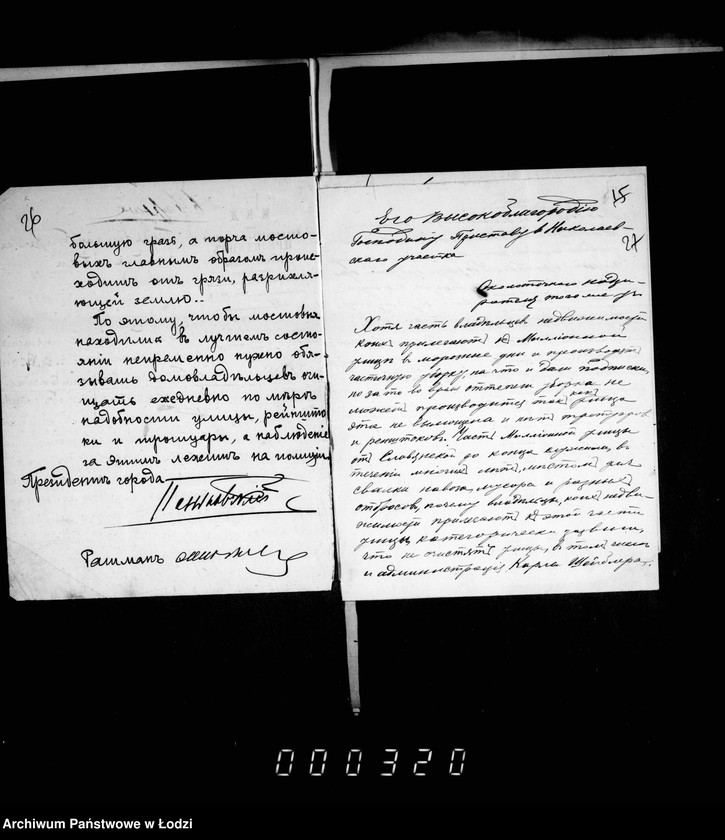 26
большую грязь, а порча мосто-
выхъ главнымъ образомъ проис-
ходитъ отъ грязи, разрыхля-
ющей землю..
По этому, чтобы мостовыя
находились въ лучшемъ состо-
яніи непремѣнно нужно обя-
зывать домовладѣльцевъ очи-
щать ежедневно по мѣрѣ
надобности улицы, рейншто-
ки и тротуары, а наблюденіе
за этимъ лежитъ на полиціи
Президентъ города
Пеньковскій
Ратманъ
15
27
Его Высокоблагородію
Господину Приставу Николаев-
скаго участка
Околоточнаго надзи-
рателя того же уч.
Хотя часть владѣльцевъ недвижимостей
кои прилегаютъ къ Милліонной
улицѣ въ морозные дни и производятъ
частичную уборку, на что и дали подписки,
но за то во время оттепели уборка не
можетъ производится такъ какъ улица
эта не вымощена и нѣтъ тротуаровъ
и рештоковъ. Часть Милліонной улицы
отъ Славянской до конца служила, въ
теченіи многихъ лѣтъ, мѣстомъ для
свалки навоза, мусора и разныхъ
отбросовъ, почему владѣльцы, коихъ недви-
жимости прилегаютъ къ этой части
улицы, категорически заявили,
что не очистятъ улицы, въ томъ числѣ
и администрація Карла Шейблера.
000320
Archiwum Państwowe w Łodzi